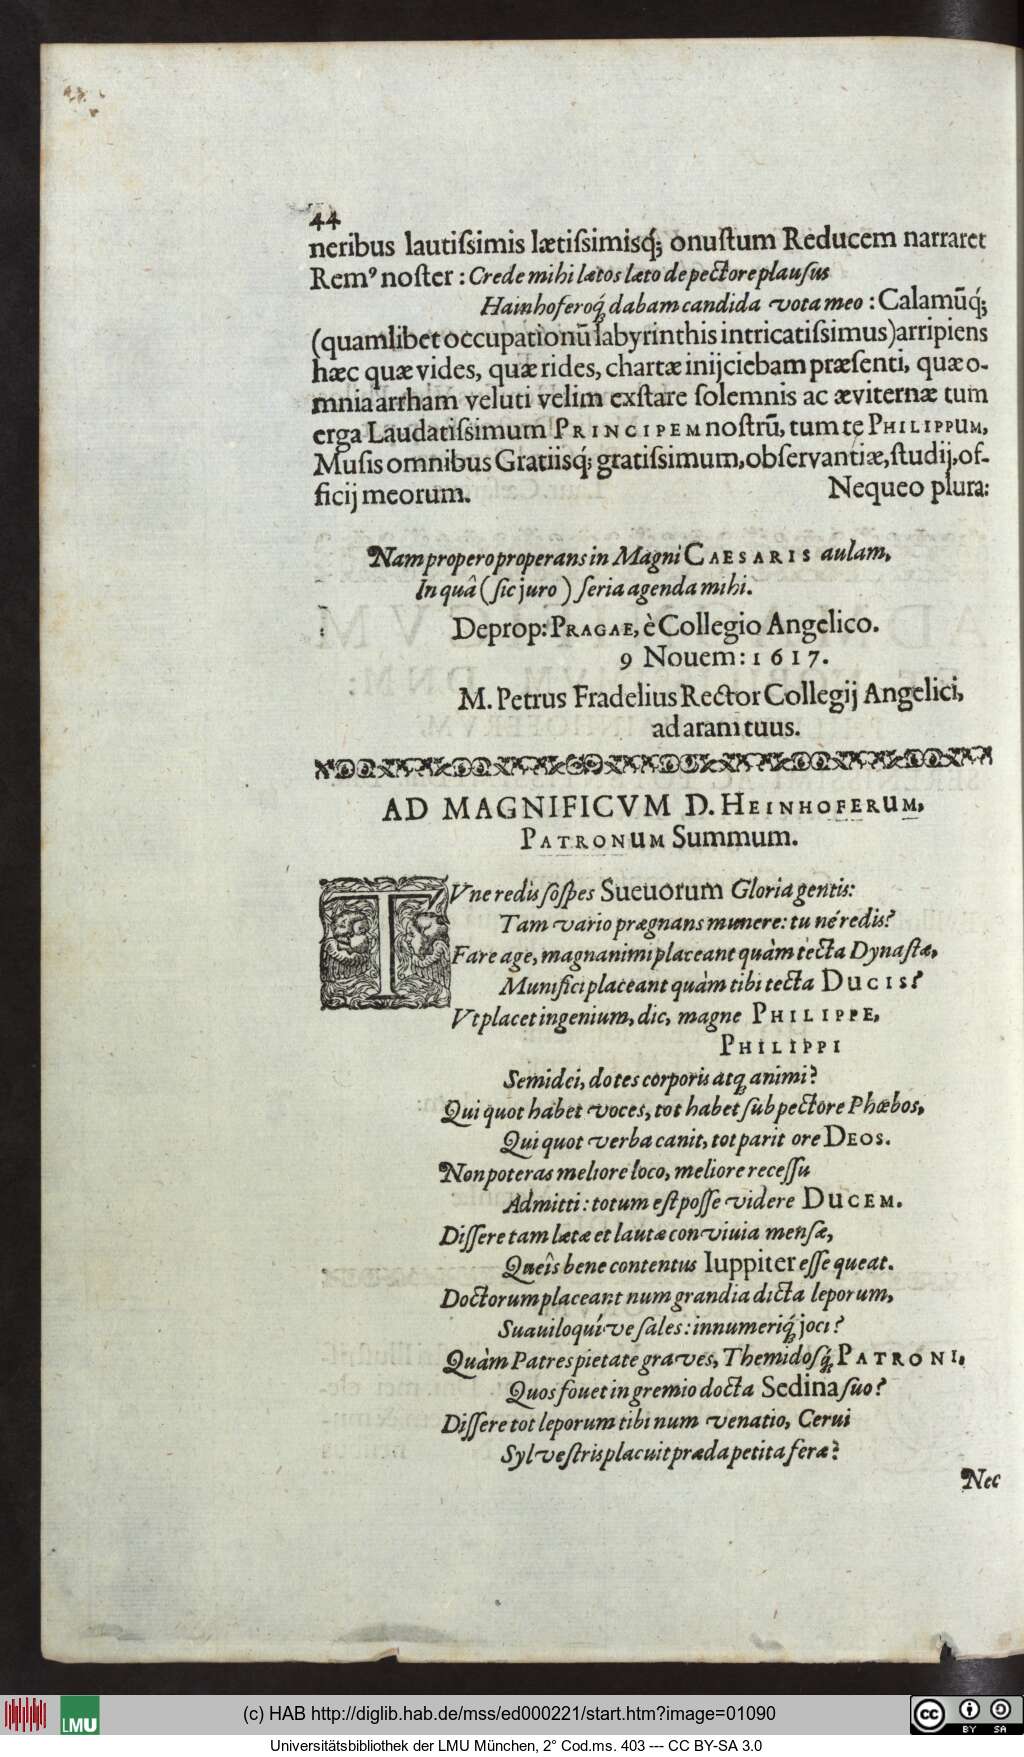 44
neribus lautiſsimis lætiſsimisq́; onuſtum Reducem narraret
Remꝰ noſter : Crede mihi lætos læto de pectore plauſus
Hainhoferoq́ dabam candida vota meo : Calamūq́;
(quamlibet occupationū labyrinthis intricatiſsimus) arripiens
hæc quæ vides, quæ rides, chartæ inijciebam præſenti, quæ o-
mnia arrham veluti velim exſtare ſolemnis ac æviternæ tum
erga Laudatiſsimum PRINCIPEM noſtrū, tum te PHILIPPUM,
Muſis omnibus Gratiisq́; gratiſsimum, obſervantiæ, ſtudij, of-
ficij meorum. Nequeo plura:
Nam propero properans in Magni CAESARIS aulam,
In quâ (ſic juro) ſeria agenda mihi.
Deprop: PRAGAE, è Collegio Angelico.
9 Nouem: 1617.
M. Petrus Fradelius Rector Collegij Angelici,
ad aram tuus.
AD MAGNIFICVM D. HEINHOFERUM,
PATRONUM Summum.
TVne redis ſoſpes Sueuorum Gloria gentis:
Tam vario prægnans munere: tu né redis?
Fare age, magnanimi placeant quàm tecta Dynaſtæ,
Munifici placeant quàm tibi tecta DUCIS?
Vt placet ingenium, dic, magne PHILIPPE,
PHILIPPI
Semidei, dotes corporis atq; animi?
Qui quot habet voces, tot habet ſub pectore Phœbos,
Qui quot verba canit, tot parit ore DEOS.
Non poteras meliore loco, meliore receſſu
Admitti : totum eſt poſſe videre DUCEM.
Diſſere tam lætæ et lautæ conviuia menſæ,
Queîs bene contentus Iuppiter eſſe queat.
Doctorum placeant num grandia dicta leporum,
Suauiloquí ve ſales : innumeriq́; joci?
Quàm Patres pietate graves, Themidoſq́; PATRONI,
Quos fouet in gremio docta Sedina ſuo?
Diſſere tot leporum tibi num venatio, Cerui
Sylveſtris placuit præda petita feræ?
Nec
(c) HAB http://diglib.hab.de/mss/ed000221/start.htm?image=01090
LMU
CC BY SA
Universitätsbibliothek der LMU München, 2° Cod.ms. 403 --- CC BY-SA 3.0